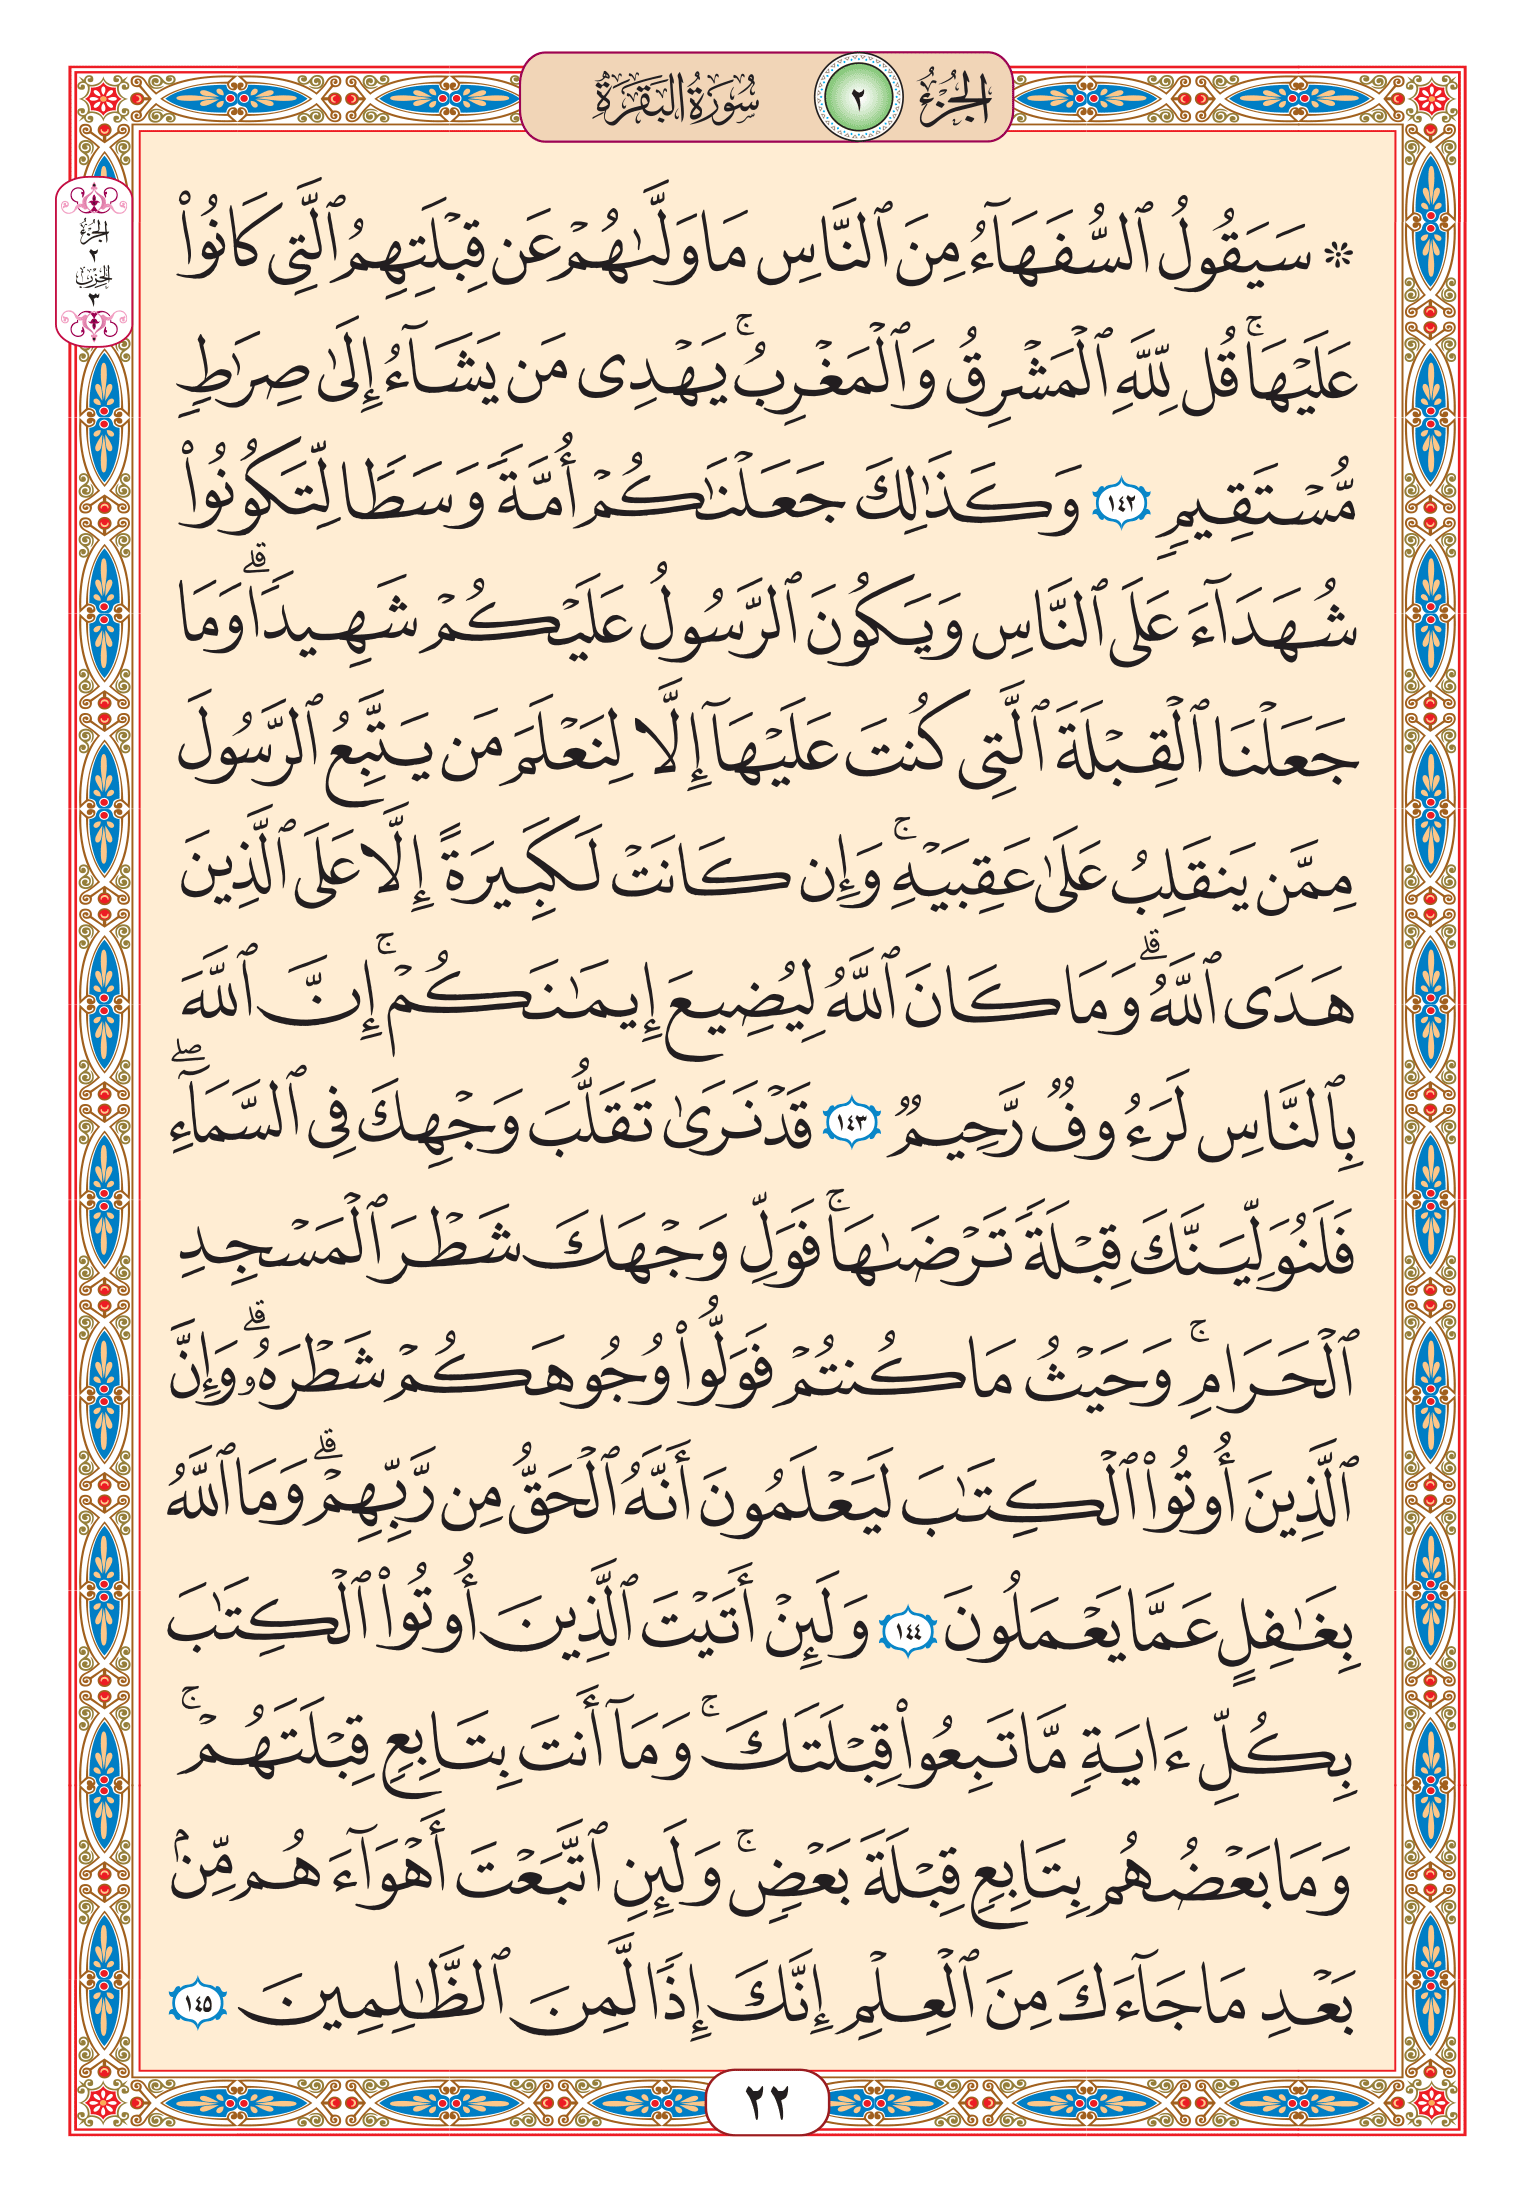 الجُزْءُ ٢ سُورَةُ البَقَرَةِ
الجُزْءُ
٢
الحِزْب
٣
۞ سَيَقُولُ ٱلسُّفَهَآءُ مِنَ ٱلنَّاسِ مَا وَلَّىٰهُمْ عَن قِبْلَتِهِمُ ٱلَّتِى كَانُوا۟
عَلَيْهَا ۚ قُل لِّلَّهِ ٱلْمَشْرِقُ وَٱلْمَغْرِبُ ۚ يَهْدِى مَن يَشَآءُ إِلَىٰ صِرَٰطٍ
مُّسْتَقِيمٍ ١٤٢ وَكَذَٰلِكَ جَعَلْنَٰكُمْ أُمَّةً وَسَطًا لِّتَكُونُوا۟
شُهَدَآءَ عَلَى ٱلنَّاسِ وَيَكُونَ ٱلرَّسُولُ عَلَيْكُمْ شَهِيدًا ۗ وَمَا
جَعَلْنَا ٱلْقِبْلَةَ ٱلَّتِى كُنتَ عَلَيْهَآ إِلَّا لِنَعْلَمَ مَن يَتَّبِعُ ٱلرَّسُولَ
مِمَّن يَنقَلِبُ عَلَىٰ عَقِبَيْهِ ۚ وَإِن كَانَتْ لَكَبِيرَةً إِلَّا عَلَى ٱلَّذِينَ
هَدَى ٱللَّهُ ۗ وَمَا كَانَ ٱللَّهُ لِيُضِيعَ إِيمَٰنَكُمْ ۚ إِنَّ ٱللَّهَ
بِٱلنَّاسِ لَرَءُوفٌ رَّحِيمٌ ١٤٣ قَدْ نَرَىٰ تَقَلُّبَ وَجْهِكَ فِى ٱلسَّمَآءِ ۖ
فَلَنُوَلِّيَنَّكَ قِبْلَةً تَرْضَىٰهَا ۚ فَوَلِّ وَجْهَكَ شَطْرَ ٱلْمَسْجِدِ
ٱلْحَرَامِ ۚ وَحَيْثُ مَا كُنتُمْ فَوَلُّوا۟ وُجُوهَكُمْ شَطْرَهُۥ ۗ وَإِنَّ
ٱلَّذِينَ أُوتُوا۟ ٱلْكِتَٰبَ لَيَعْلَمُونَ أَنَّهُ ٱلْحَقُّ مِن رَّبِّهِمْ ۗ وَمَا ٱللَّهُ
بِغَٰفِلٍ عَمَّا يَعْمَلُونَ ١٤٤ وَلَئِنْ أَتَيْتَ ٱلَّذِينَ أُوتُوا۟ ٱلْكِتَٰبَ
بِكُلِّ ءَايَةٍ مَّا تَبِعُوا۟ قِبْلَتَكَ ۚ وَمَآ أَنتَ بِتَابِعٍ قِبْلَتَهُمْ ۚ
وَمَا بَعْضُهُم بِتَابِعٍ قِبْلَةَ بَعْضٍ ۚ وَلَئِنِ ٱتَّبَعْتَ أَهْوَآءَهُم مِّنۢ
بَعْدِ مَا جَآءَكَ مِنَ ٱلْعِلْمِ إِنَّكَ إِذًا لَّمِنَ ٱلظَّٰلِمِينَ ١٤٥
٢٢